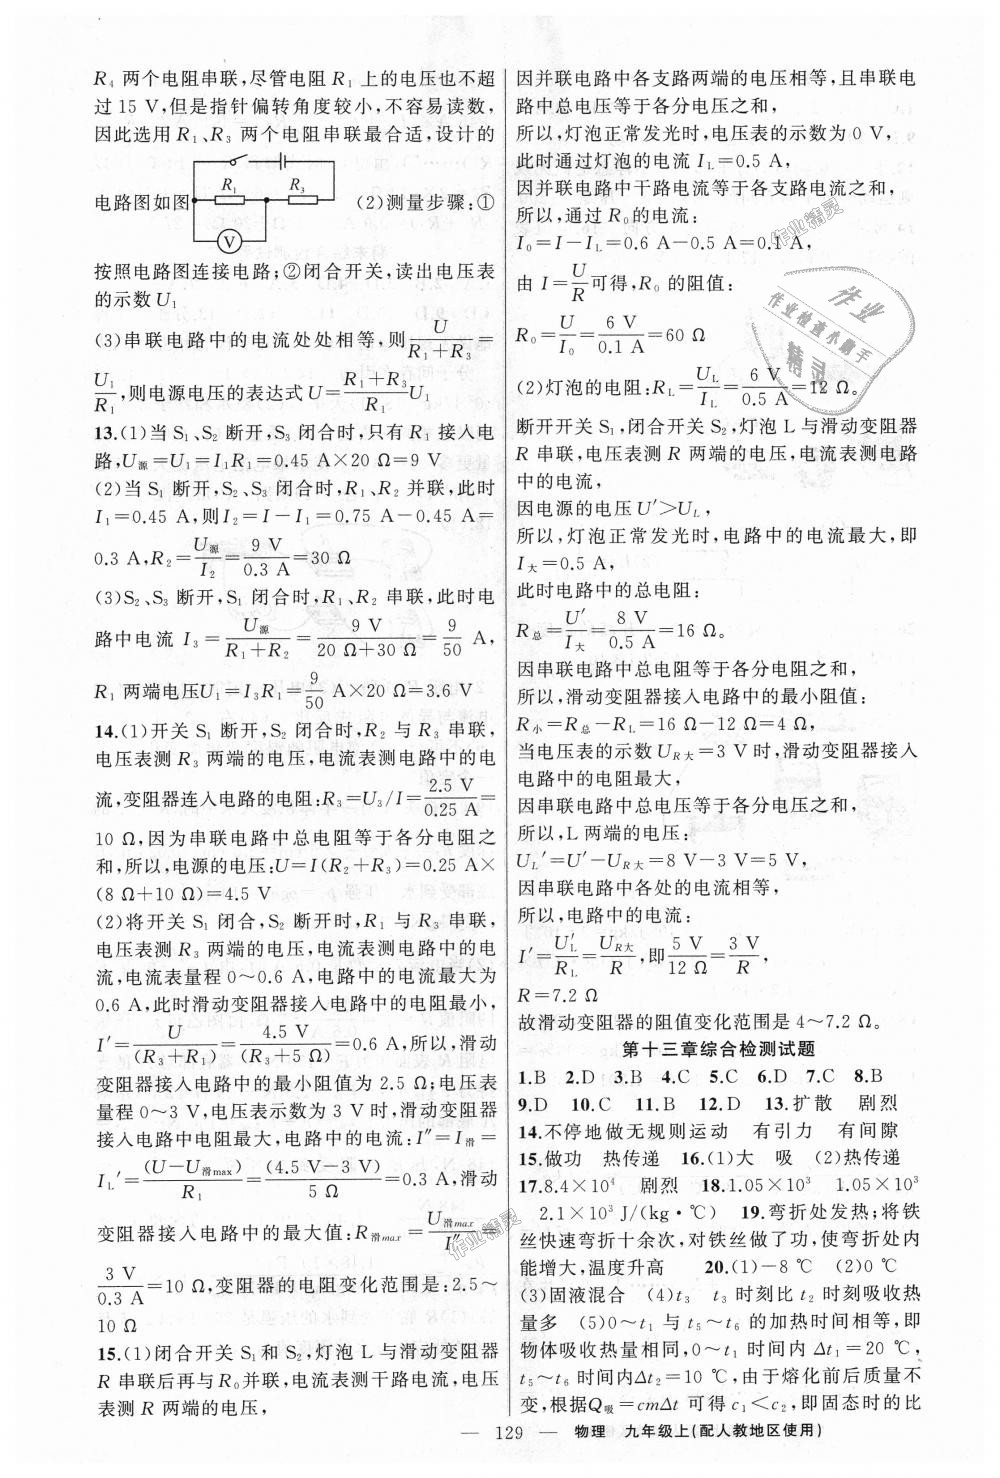 R₄ 两个电阻串联,尽管电阻 R₁ 上的电压也不超
过 15 V,但是指针偏转角度较小,不容易读数,
因此选用 R₁、R₃ 两个电阻串联最合适,设计的
R₁ R₃
电路图如图 (2)测量步骤:①
V
按照电路图连接电路;②闭合开关,读出电压表
的示数 U₁
(3)串联电路中的电流处处相等,则 U/(R₁+R₃)=
U₁/R₁,则电源电压的表达式 U=(R₁+R₃)/R₁ U₁
13.(1)当 S₁、S₂ 断开,S₃ 闭合时,只有 R₁ 接入电
路,U源=U₁=I₁R₁=0.45 A×20 Ω=9 V
(2)当 S₁ 断开,S₂、S₃ 闭合时,R₁、R₂ 并联,此时
I₁=0.45 A,则 I₂=I-I₁=0.75 A-0.45 A=
0.3 A,R₂=U源/I₂=9 V/0.3 A=30 Ω
(3)S₂、S₃ 断开,S₁ 闭合时,R₁、R₂ 串联,此时电
路中电流 I₃=U源/(R₁+R₂)=9 V/(20 Ω+30 Ω)=9/50 A,
R₁ 两端电压U₁=I₃R₁=9/50 A×20 Ω=3.6 V
14.(1)开关 S₁ 断开,S₂ 闭合时,R₂ 与 R₃ 串联,
电压表测 R₃ 两端的电压,电流表测电路中的电
流,变阻器连入电路的电阻:R₃=U₃/I=2.5 V/0.25 A=
10 Ω,因为串联电路中总电阻等于各分电阻之
和,所以,电源的电压:U=I(R₂+R₃)=0.25 A×
(8 Ω+10 Ω)=4.5 V
(2)将开关 S₁ 闭合,S₂ 断开时,R₁ 与 R₃ 串联,
电压表测 R₃ 两端的电压,电流表测电路中的电
流,电流表量程 0～0.6 A,电路中的电流最大为
0.6 A,此时滑动变阻器接入电路中的电阻最小,
I′=U/(R₃+R₁)=4.5 V/(R₃+5 Ω)=0.6 A,所以,滑动
变阻器接入电路中的最小阻值为 2.5 Ω;电压表
量程 0～3 V,电压表示数为 3 V 时,滑动变阻器
接入电路中电阻最大,电路中的电流:I″=I滑=
I_L′=(U-U滑max)/R₁=(4.5 V-3 V)/5 Ω=0.3 A,滑动
变阻器接入电路中的最大值:R滑max=U滑max/I″=
3 V/0.3 A=10 Ω,变阻器的电阻变化范围是:2.5～
10 Ω
15.(1)闭合开关 S₁和 S₂,灯泡 L 与滑动变阻器
R 串联后再与 R₀并联,电流表测干路电流,电压
表测 R 两端的电压,
因并联电路中各支路两端的电压相等,且串联电
路中总电压等于各分电压之和,
所以,灯泡正常发光时,电压表的示数为 0 V,
此时通过灯泡的电流 I_L=0.5 A,
因并联电路中干路电流等于各支路电流之和,
所以,通过 R₀的电流:
I₀=I-I_L=0.6 A-0.5 A=0.1 A,
由 I=U/R可得,R₀ 的阻值:
R₀=U/I₀=6 V/0.1 A=60 Ω
(2)灯泡的电阻:R_L=U_L/I_L=6 V/0.5 A=12 Ω。
断开开关 S₁,闭合开关 S₂,灯泡 L 与滑动变阻器
R 串联,电压表测 R 两端的电压,电流表测电路
中的电流,
因电源的电压 U′>U_L,
所以,灯泡正常发光时,电路中的电流最大,即
I大=0.5 A,
此时电路中的总电阻:
R总=U′/I大=8 V/0.5 A=16 Ω。
因串联电路中总电阻等于各分电阻之和,
所以,滑动变阻器接入电路中的最小阻值:
R小=R总-R_L=16 Ω-12 Ω=4 Ω,
当电压表的示数 U_R大=3 V 时,滑动变阻器接入
电路中的电阻最大,
因串联电路中总电压等于各分电压之和,
所以,L 两端的电压:
U_L′=U′-U_R大=8 V-3 V=5 V,
因串联电路中各处的电流相等,
所以,电路中的电流:
I′=U′_L/R_L=U_R大/R,即5 V/12 Ω=3 V/R,
R=7.2 Ω
故滑动变阻器的阻值变化范围是 4～7.2 Ω。
第十三章综合检测试题
1.B 2.D 3.B 4.C 5.C 6.D 7.C 8.B
9.D 10.C 11.B 12.D 13.扩散 剧烈
14.不停地做无规则运动 有引力 有间隙
15.做功 热传递 16.(1)大 吸 (2)热传递
17.8.4×10⁴ 剧烈 18.1.05×10³ 1.05×10³
2.1×10³ J/(kg·℃) 19.弯折处发热;将铁
丝快速弯折十余次,对铁丝做了功,使弯折处内
能增大,温度升高 20.(1)-8 ℃ (2)0 ℃
(3)固液混合 (4)t₃ t₃ 时刻比 t₂ 时刻吸收热
量多 (5)0～t₁ 与 t₅～t₆ 的加热时间相等,即
物体吸收热量相同,0～t₁ 时间内 Δt₁=20 ℃,
t₅～t₆ 时间内Δt₂=10 ℃,由于熔化前后质量不
变,根据Q吸=cmΔt 可得 c₁<c₂,即固态时的比
— 129 — 物理 九年级上(配人教地区使用)
作业
作业检查小助手
精灵
作业精灵
作业精灵